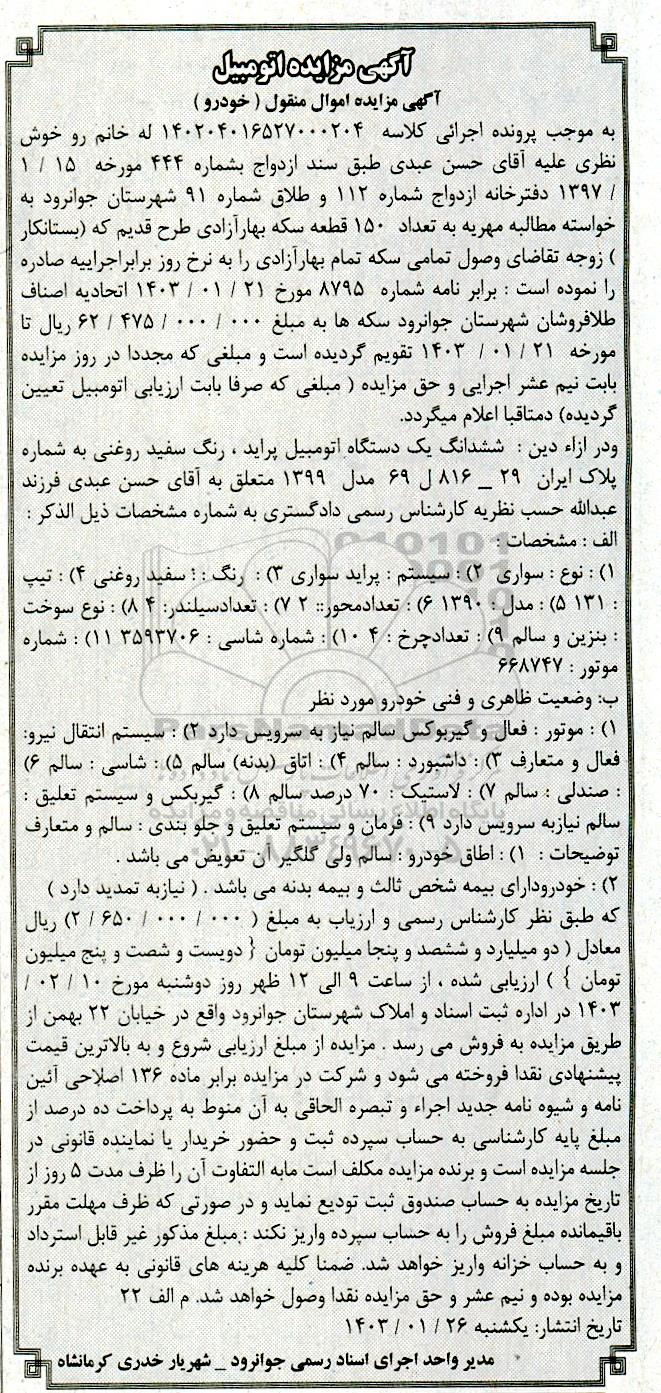 آگهی مزایده اتومبیل
آگهی مزایده اموال منقول ( خودرو )
به موجب پرونده اجرائی کلاسه ۱۴۰۲۰۴۰۱۶۵۲۷۰۰۰۲۰۴ له خانم رو خوش
نظری علیه آقای حسن عبدی طبق سند ازدواج بشماره ۴۴۴ مورخه ۱۵ / ۱
/ ۱۳۹۷ دفترخانه ازدواج شماره ۱۱۲ و طلاق شماره ۹۱ شهرستان جوانرود به
خواسته مطالبه مهریه به تعداد ۱۵۰ قطعه سکه بهارآزادی طرح قدیم که (بستانکار
) زوجه تقاضای وصول تمامی سکه تمام بهارآزادی را به نرخ روز برابراجراییه صادره
را نموده است : برابر نامه شماره ۸۷۹۵ مورخ ۲۱ / ۰۱ / ۱۴۰۳ اتحادیه اصناف
طلافروشان شهرستان جوانرود سکه ها به مبلغ ۰۰۰ / ۰۰۰ / ۴۷۵ / ۶۲ ریال تا
مورخه ۲۱ / ۰۱ / ۱۴۰۳ تقویم گردیده است و مبلغی که مجددا در روز مزایده
بابت نیم عشر اجرایی و حق مزایده ( مبلغی که صرفا بابت ارزیابی اتومبیل تعیین
گردیده) دمتاقبا اعلام میگردد.
ودر ازاء دین : ششدانگ یک دستگاه اتومبیل پراید ، رنگ سفید روغنی به شماره
پلاک ایران ۲۹ _ ۸۱۶ ل ۶۹ مدل ۱۳۹۹ متعلق به آقای حسن عبدی فرزند
عبدالله حسب نظریه کارشناس رسمی دادگستری به شماره مشخصات ذیل الذکر :
الف : مشخصات :
۱) : نوع : سواری ۲) : سیستم : پراید سواری ۳) : رنگ : : سفید روغنی ۴) : تیپ
: ۱۳۱ ۵) : مدل : ۱۳۹۰ ۶) : تعدادمحور:: ۲ ۷) : تعدادسیلندر: ۴ ۸) : نوع سوخت
: بنزین و سالم ۹) : تعدادچرخ : ۴ ۱۰) : شماره شاسی : ۳۵۹۳۷۰۶ ۱۱) : شماره
موتور : ۶۶۸۷۴۷
ب: وضعیت ظاهری و فنی خودرو مورد نظر
۱) : موتور : فعال و گیربوکس سالم نیاز به سرویس دارد ۲) : سیستم انتقال نیرو:
فعال و متعارف ۳) : داشبورد : سالم ۴) : اتاق (بدنه) سالم ۵) : شاسی : سالم ۶)
: صندلی : سالم ۷) : لاستیک : ۷۰ درصد سالم ۸) : گیربکس و سیستم تعلیق :
سالم نیازبه سرویس دارد ۹) : فرمان و سیستم تعلیق و جلو بندی : سالم و متعارف
توضیحات : ۱) : اطاق خودرو : سالم ولی گلگیر آن تعویض می باشد .
۲) : خودرودارای بیمه شخص ثالث و بیمه بدنه می باشد . ( نیازبه تمدید دارد )
که طبق نظر کارشناس رسمی و ارزیاب به مبلغ ( ۰۰۰ / ۰۰۰ / ۶۵۰ / ۲) ریال
معادل ( دو میلیارد و ششصد و پنجا میلیون تومان { دویست و شصت و پنج میلیون
تومان } ) ارزیابی شده ، از ساعت ۹ الی ۱۲ ظهر روز دوشنبه مورخ ۱۰ / ۰۲ /
۱۴۰۳ در اداره ثبت اسناد و املاک شهرستان جوانرود واقع در خیابان ۲۲ بهمن از
طریق مزایده به فروش می رسد . مزایده از مبلغ ارزیابی شروع و به بالاترین قیمت
پیشنهادی نقدا فروخته می شود و شرکت در مزایده برابر ماده ۱۳۶ اصلاحی آئین
نامه و شیوه نامه جدید اجراء و تبصره الحاقی به آن منوط به پرداخت ده درصد از
مبلغ پایه کارشناسی به حساب سپرده ثبت و حضور خریدار یا نماینده قانونی در
جلسه مزایده است و برنده مزایده مکلف است مابه التفاوت آن را ظرف مدت ۵ روز از
تاریخ مزایده به حساب صندوق ثبت تودیع نماید و در صورتی که ظرف مهلت مقرر
باقیمانده مبلغ فروش را به حساب سپرده واریز نکند : مبلغ مذکور غیر قابل استرداد
و به حساب خزانه واریز خواهد شد. ضمنا کلیه هزینه های قانونی به عهده برنده
مزایده بوده و نیم عشر و حق مزایده نقدا وصول خواهد شد. م الف ۲۲
تاریخ انتشار: یکشنبه ۲۶ / ۰۱ / ۱۴۰۳
مدیر واحد اجرای اسناد رسمی جوانرود _ شهریار خدری کرمانشاه
ParsNamadData